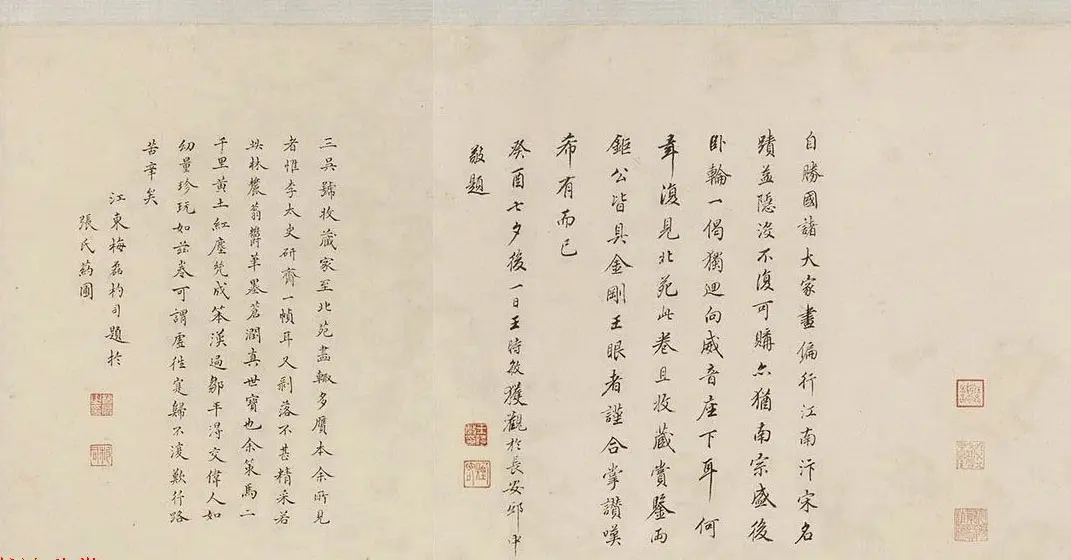 自勝國諸大家畫徧行江南汴宋名
蹟並隱沒不復可購亦猶南宗盛後
臥輪一偈獨迴向威音座下耳何
幸復見北苑此卷且收藏賞鑒兩
鉅公皆具金剛王眼者謹合掌讚嘆
希有而已
癸酉七夕後一日王時敏獲觀於長安邸中
敬題
三吳號收藏家至北苑畫輙多贋本余所見
者惟李太史研齋一幀耳又剥落不甚精采若
此林麓蓊鬱筆墨蒼潤真世寶也余策馬二
千里黃土紅塵幾成笨漢過鄒平得交偉人如
幼量珍玩如茲卷可謂虛徃寔歸不復歎行路
苦辛矣
江東梅磊杓司題於
張氏葯圃